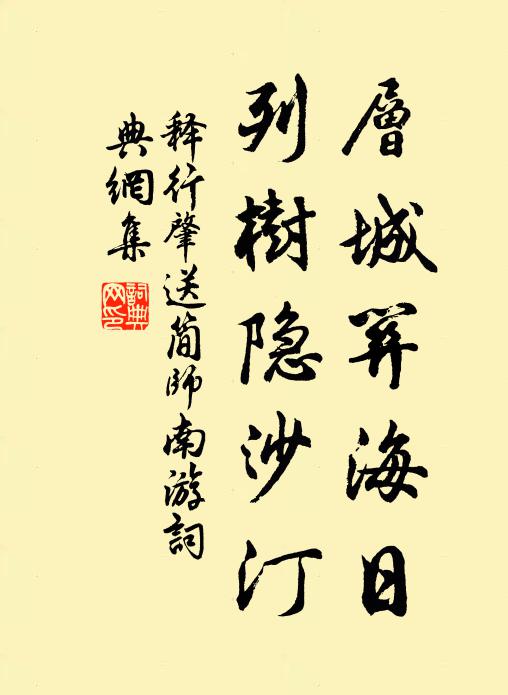 層城開海日
列樹隐沙汀
释行肇送简師南游詞
典網集
詞典
网印